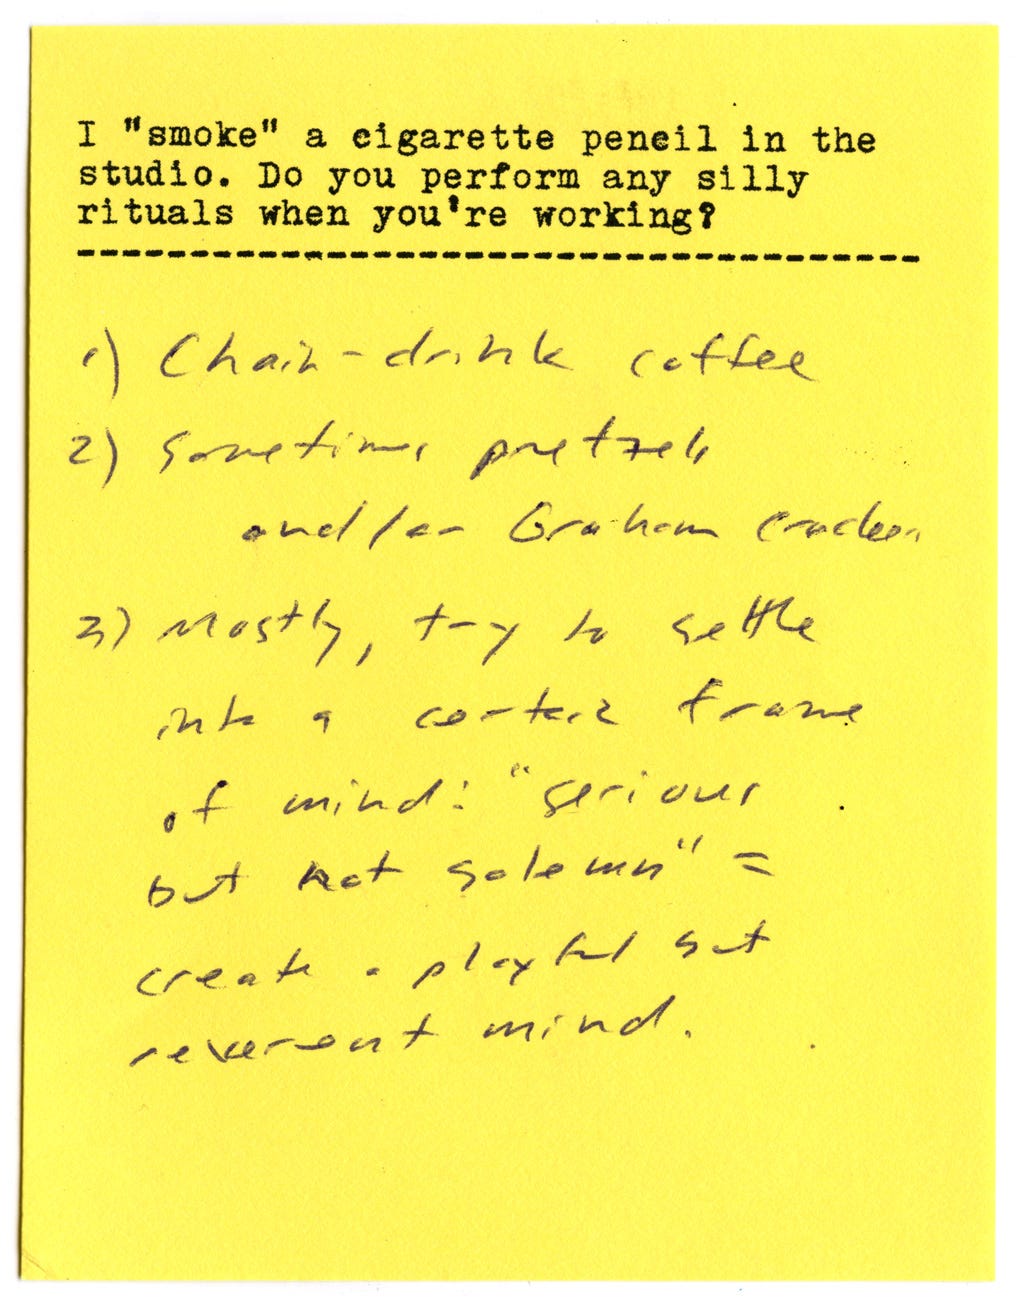 I "smoke" a cigarette pencil in the
studio. Do you perform any silly
rituals when you're working?
----------------------------------------
1) Chain-drink coffee
2) Sometimes pretzels
and/or Graham crackers
3) Mostly, try to settle
into a certain frame
of mind: "serious
but not solemn" =
create a playful but
reverent mind.